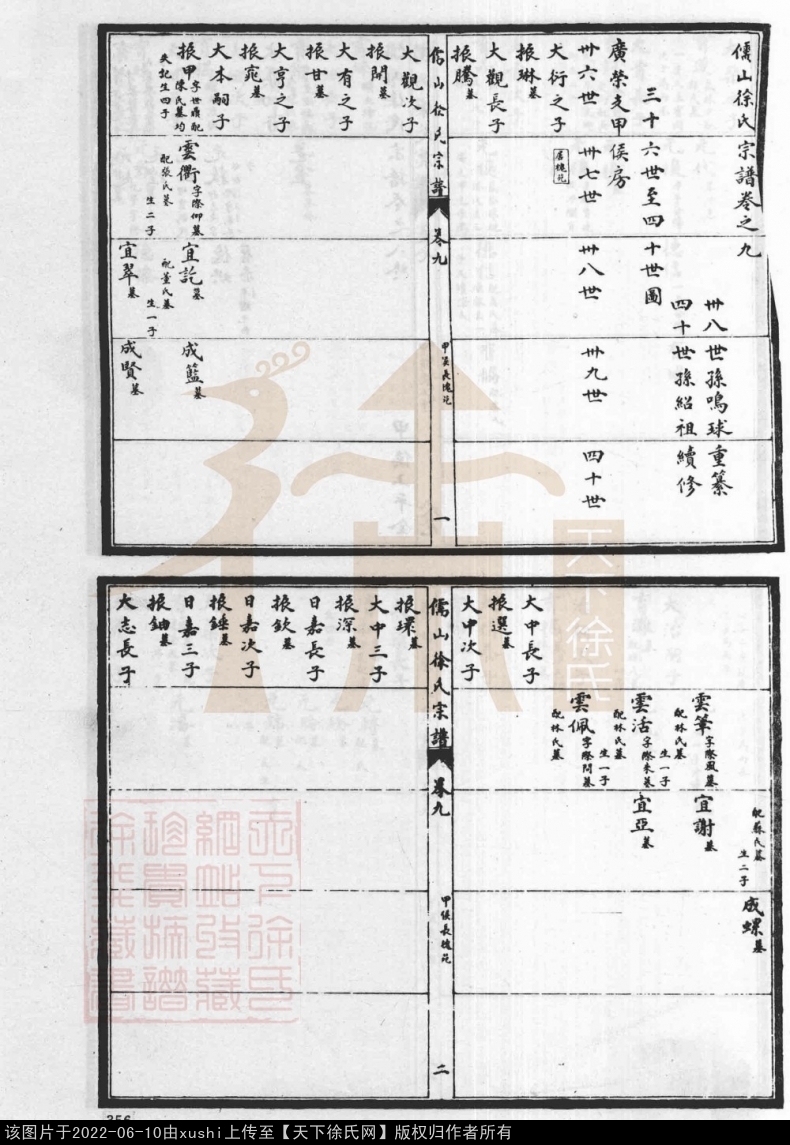 儒山徐氏宗譜卷之九
卅八世孫鳴球重纂
四十世孫紹祖續修
三十六世至四十世圖
廣榮支甲侯房
卅六世 卅七世 卅八世 卅九世 四十世
大衍之子
振琳墓
大觀長子
振騰墓
儒山徐氏宗譜 卷九 一
大觀次子
振開墓
大有之子
振甘墓
大亨之子
振寵墓
大本嗣子
振甲字世職配
陳氏墓均
失記生四子
雲衢字際仰墓
配張氏墓
生二子
宜訖墓
配董氏墓
生一子
成籃墓
宜翠墓
成賢墓
配蘇氏墓
生二子
成螺墓
雲筆字際風墓
配林氏墓
生一子
宜謝墓
雲活字際來墓
配林氏墓
生一子
宜亞墓
雲佩字際問墓
配林氏墓
大中長子
振選墓
大中次子
儒山徐氏宗譜 卷九 二
振環墓
大中三子
振深墓
日嘉長子
振欽墓
日嘉次子
振錘墓
日嘉三子
振鈾墓
大志長子
天下徐氏
356
该图片于2022-06-10由xushi上传至【天下徐氏网】版权归作者所有